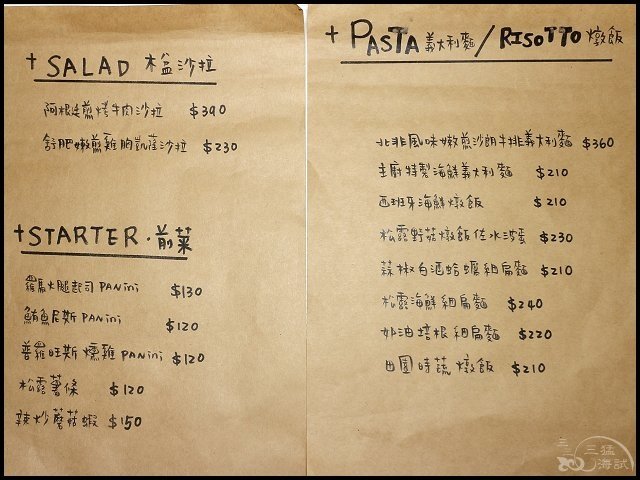 + SALAD 木盆沙拉
阿根廷煎烤牛肉沙拉 $390
舒肥嫩煎雞胸凱薩沙拉 $230
+ STARTER.前菜
羅馬火腿起司 PANini $130
鮪魚尼斯 PANini $120
普羅旺斯燻雞 PANini $120
松露薯條 $120
辣炒蘑菇蝦 $150
+ PASTA 義大利麵 / RISOTTO 燉飯
北非風味嫩煎沙朗牛排義大利麵 $360
主廚特製海鮮義大利麵 $210
西班牙海鮮燉飯 $210
松露野菇燉飯佐水波蛋 $230
蒜椒白酒蛤蠣細扁麵 $210
松露海鮮細扁麵 $240
奶油培根細扁麵 $220
田園時蔬燉飯 $210
三猛
海試